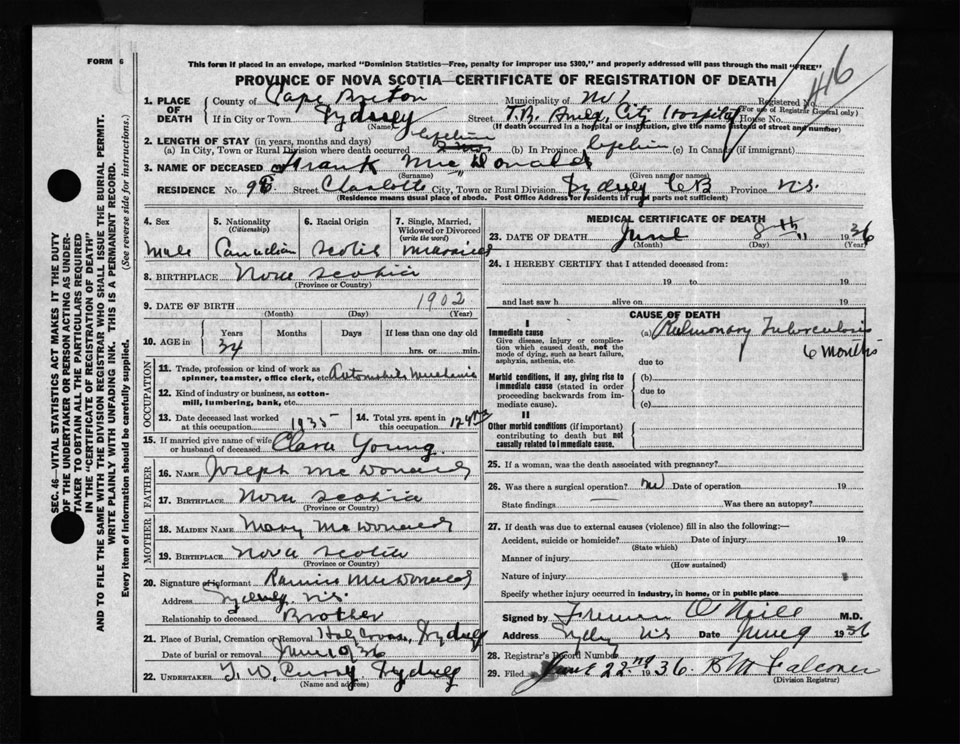 FORM 6
This form if placed in an envelope, marked "Dominion Statistics—Free, penalty for improper use $300," and properly addressed will pass through the mail "FREE"
PROVINCE OF NOVA SCOTIA—CERTIFICATE OF REGISTRATION OF DEATH
416
1. PLACE OF DEATH County of Cape Breton Municipality of Registered No.
(For use of Registrar General only)
If in City or Town Sydney Street T.B. Annex, City Hospital House No.
(Name) (If death occurred in a hospital or institution, give the name instead of street and number)
2. LENGTH OF STAY (in years, months and days)
(a) In City, Town or Rural Division where death occurred Lifetime (b) In Province Lifetime (c) In Canada (if immigrant)
3. NAME OF DECEASED Frank McDonald
(Surname) (Given name or names)
RESIDENCE No. 98 Street Charlotte City, Town or Rural Division Sydney CB Province N.S.
(Residence means usual place of abode. Post Office Address for residents in rural parts not sufficient)
4. Sex
Male
5. Nationality (Citizenship)
Canadian
6. Racial Origin
Scotch
7. Single, Married, Widowed or Divorced (write the word)
Married
8. BIRTHPLACE Nova Scotia
(Province or Country)
9. DATE OF BIRTH 1902
(Month) (Day) (Year)
10. AGE in Years Months Days If less than one day old
34 hrs. or min.
OCCUPATION
11. Trade, profession or kind of work as spinner, teamster, office clerk, etc. Automobile Mechanic
12. Kind of industry or business, as cotton-mill, lumbering, bank, etc.
13. Date deceased last worked at this occupation 1935
14. Total yrs. spent in this occupation 12 yrs
15. If married give name of wife or husband of deceased Clara Young
FATHER
16. NAME Joseph McDonald
17. BIRTHPLACE Nova Scotia
(Province or Country)
MOTHER
18. MAIDEN NAME Mary McDonald
19. BIRTHPLACE Nova Scotia
(Province or Country)
20. Signature of informant McDonald
Address Sydney N.S.
Relationship to deceased Brother
21. Place of Burial, Cremation or Removal Holy Cross, Sydney
Date of burial or removal June 10 36
22. UNDERTAKER T. W. Curry Sydney
(Name and address)
MEDICAL CERTIFICATE OF DEATH
23. DATE OF DEATH June 8th 1936
(Month) (Day) (Year)
24. I HEREBY CERTIFY that I attended deceased from:
19 to 19
and last saw h alive on 19
CAUSE OF DEATH
I
Immediate cause
Give disease, injury or complication which caused death, not the mode of dying, such as heart failure, asphyxia, asthenia, etc.
(a) Pulmonary Tuberculosis
6 months
due to
Morbid conditions, if any, giving rise to immediate cause (stated in order proceeding backwards from immediate cause).
(b)
due to
(c)
II
Other morbid conditions (if important) contributing to death but not causally related to immediate cause.
25. If a woman, was the death associated with pregnancy?
26. Was there a surgical operation? No Date of operation 19
State findings Was there an autopsy?
27. If death was due to external causes (violence) fill in also the following:—
Accident, suicide or homicide? Date of injury 19
(State which)
Manner of injury
(How sustained)
Nature of injury
Specify whether injury occurred in industry, in home, or in public place
Signed by O'Neill M.D.
Address Sydney N.S. Date June 9 1936
28. Registrar's Record Number
29. Filed June 22nd 1936. Falconer
(Division Registrar)
SEC. 46—VITAL STATISTICS ACT MAKES IT THE DUTY
OF THE UNDERTAKER OR PERSON ACTING AS UNDERTAKER TO OBTAIN ALL THE PARTICULARS REQUIRED
IN THE "CERTIFICATE OF REGISTRATION OF DEATH"
AND TO FILE THE SAME WITH THE DIVISION REGISTRAR WHO SHALL ISSUE THE BURIAL PERMIT.
WRITE PLAINLY WITH UNFADING INK. THIS IS A PERMANENT RECORD.
Every item of Information should be carefully supplied. (See reverse side for instructions.)